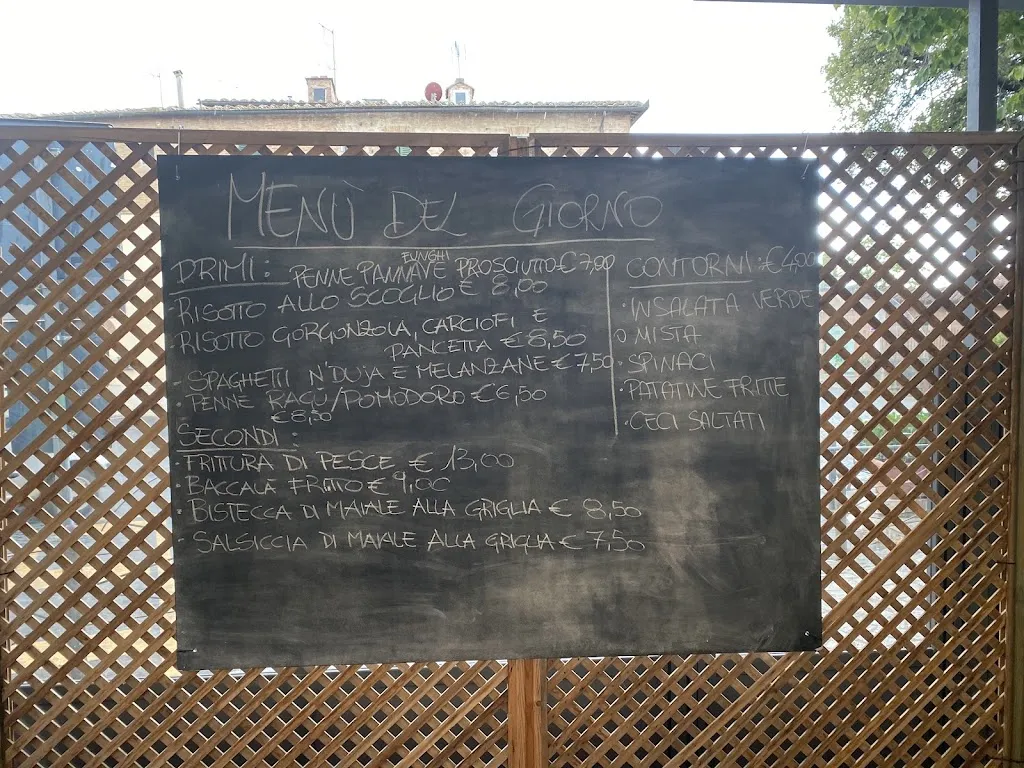 MENÙ DEL GIORNO
PRIMI: PENNE PANNA E PROSCIUTTO € 7,00
FUNGHI
· RISOTTO ALLO SCOGLIO € 8,00
· RISOTTO GORGONZOLA, CARCIOFI E
PANCETTA € 8,50
· SPAGHETTI N'DUJA E MELANZANE € 7,50
· PENNE RAGÙ/POMODORO € 6,50
€ 8,50
SECONDI:
· FRITTURA DI PESCE € 13,00
· BACCALÀ FRITTO € 9,00
· BISTECCA DI MAIALE ALLA GRIGLIA € 8,50
· SALSICCIA DI MAIALE ALLA GRIGLIA € 7,50
CONTORNI: € 4,00
· INSALATA VERDE
O MISTA
· SPINACI
· PATATINE FRITTE
· CECI SALTATI